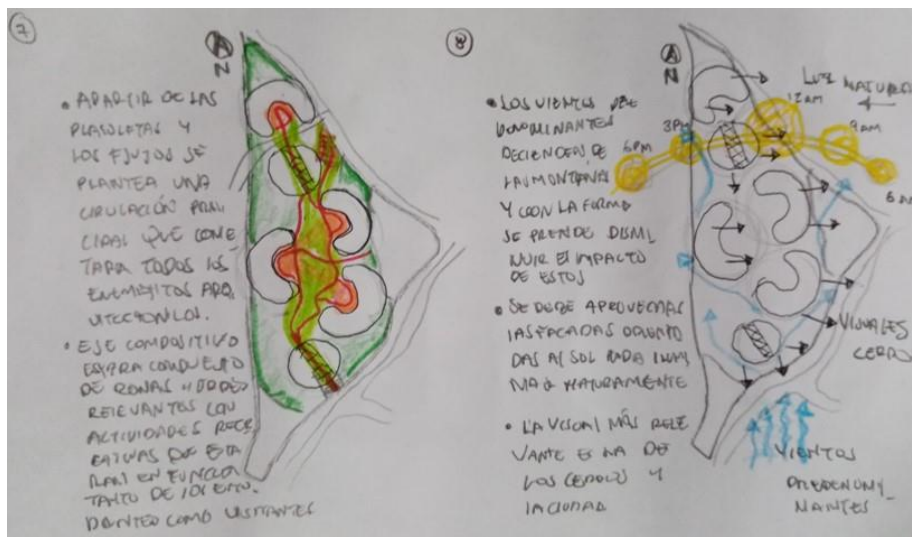 7
N
• APARTIR DE LAS
PLASOLETAS Y
LOS FLUJOS SE
PLANTEA UNA
CIRULACIÓN PRIN
CIPAL QUE CONE
TARA TODOS LOS
ELEMENTOS ARQ
UITECTONICOS.
• EJE COMPOSITIVO
ESTARA COMPUESTO
DE ZONAS VERDES
RELEVANTES CON
ACTIVIDADES RECR
EATIVAS QUE ESTA
RAN EN FUNCION
TANTO DE LOS ESTU.
DIANTES COMO VISITANTES
8
N
• LOS VIENTOS PRE
DOMINANTES
DECIENDEN DE
LAS MONTAÑAS
Y CON LA FORMA
SE PRENDE DISMI
NUIR EL IMPACTO
DE ESTOS
• SE DEBE APROVECHAR
LAS FACADAS ORIENTA
DAS AL SOL PARA ILUMI
NAR NATURAMENTE
• LA VISUAL MÁS RELE
VANTE ES LA DE
LOS CERROS Y
LA CIUDAD
LUZ NATURAL
12 am
9 am
3 PM
6 PM
6 AM
VISUALES
CERROS
VIENTOS
PREDENOMI
NANTES